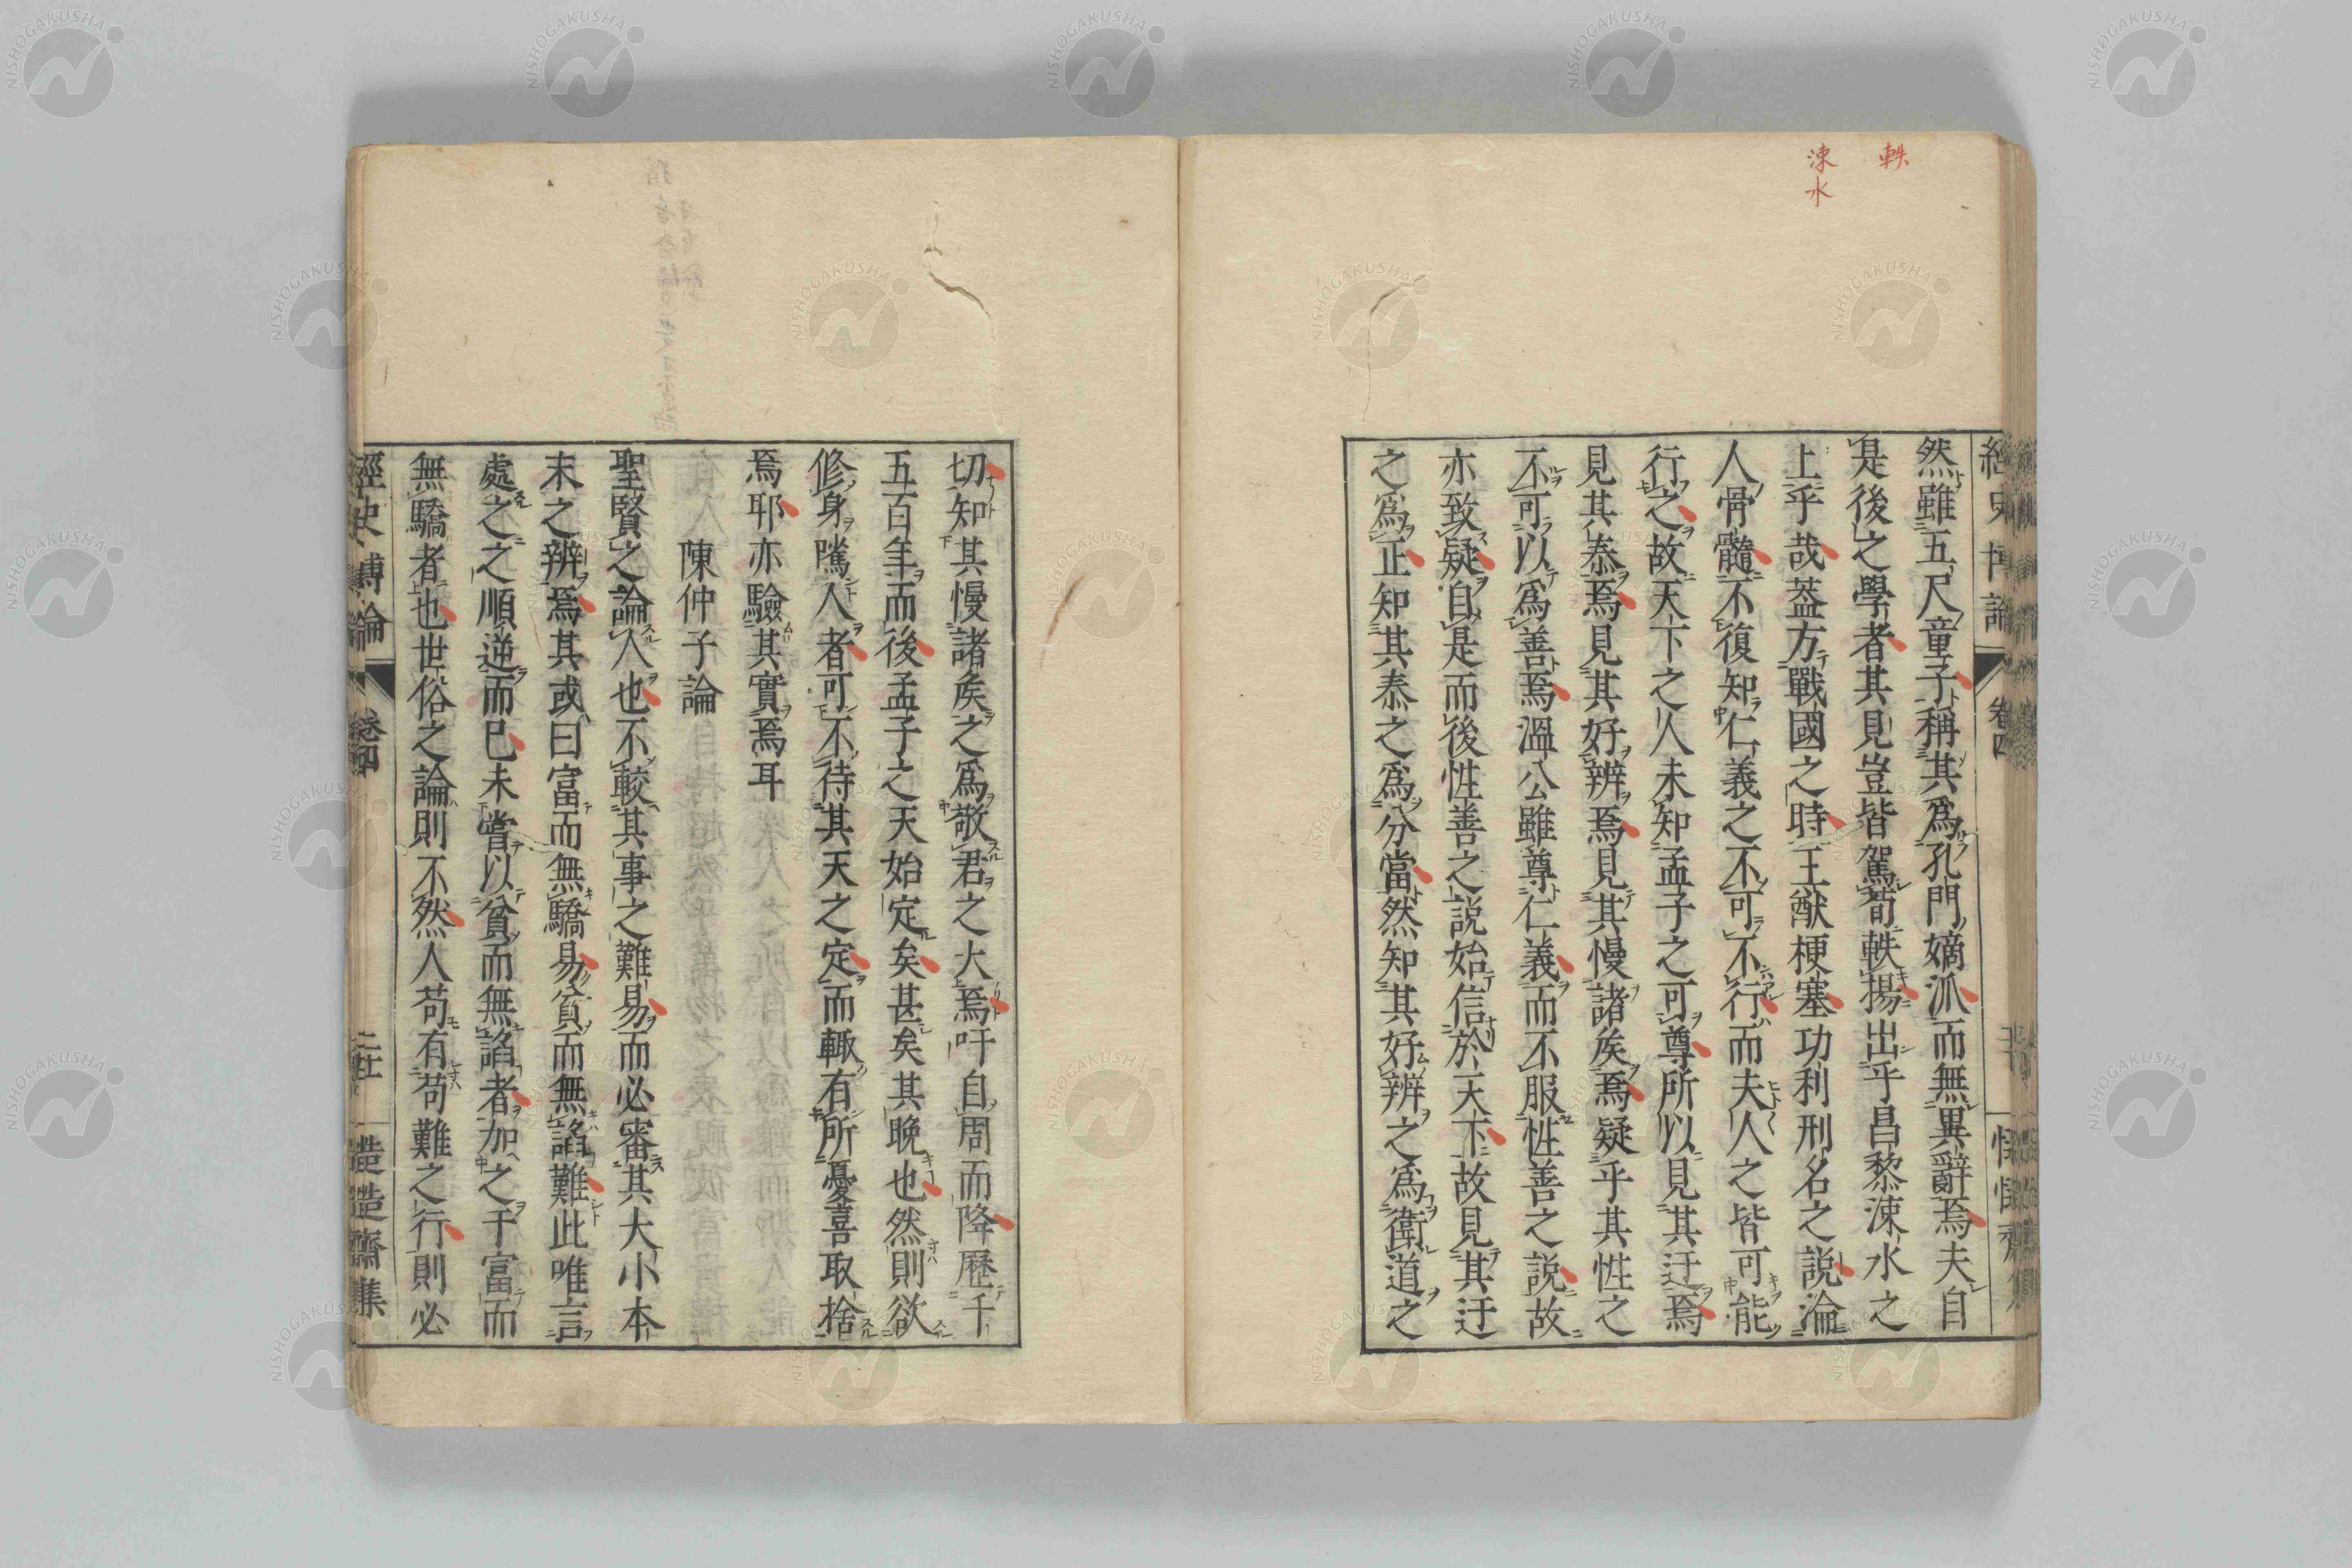 軼
涑水
然雖五尺童子稱其爲孔門嫡派而無異辭焉夫自
是後之學者其見豈皆駕荀軼揚出乎昌黎涑水之
上乎哉蓋方戰國之時王猷梗塞功利刑名之説淪
人骨髓不復知仁義之不可不行而夫人之皆可能
行之故天下之人未知孟子之可尊所以見其迂焉
見其泰焉見其好辨焉見其慢諸矦焉疑乎其性之
不可以爲善焉溫公雖尊仁義而不服性善之説故
亦致疑自是而後性善之説始信於天下故見其迂
之爲正知其泰之爲分當然知其好辨之爲衛道之
切知其慢諸矦之爲敬君之大焉吁自周而降歷千
五百年而後孟子之天始定矣甚矣其晩也然則欲
修身隲人者可不待其天之定而輙有所憂喜取捨
焉耶亦驗其實焉耳
陳仲子論
聖賢之論人也不較其事之難易而必審其大小本
末之辨焉其或曰富而無驕易貧而無諂難此唯言
處之之順逆而已未嘗以貧而無諂者加之于富而
無驕者也世俗之論則不然人苟有苟難之行則必
經史博論
卷四
NISHOGAKUSHA